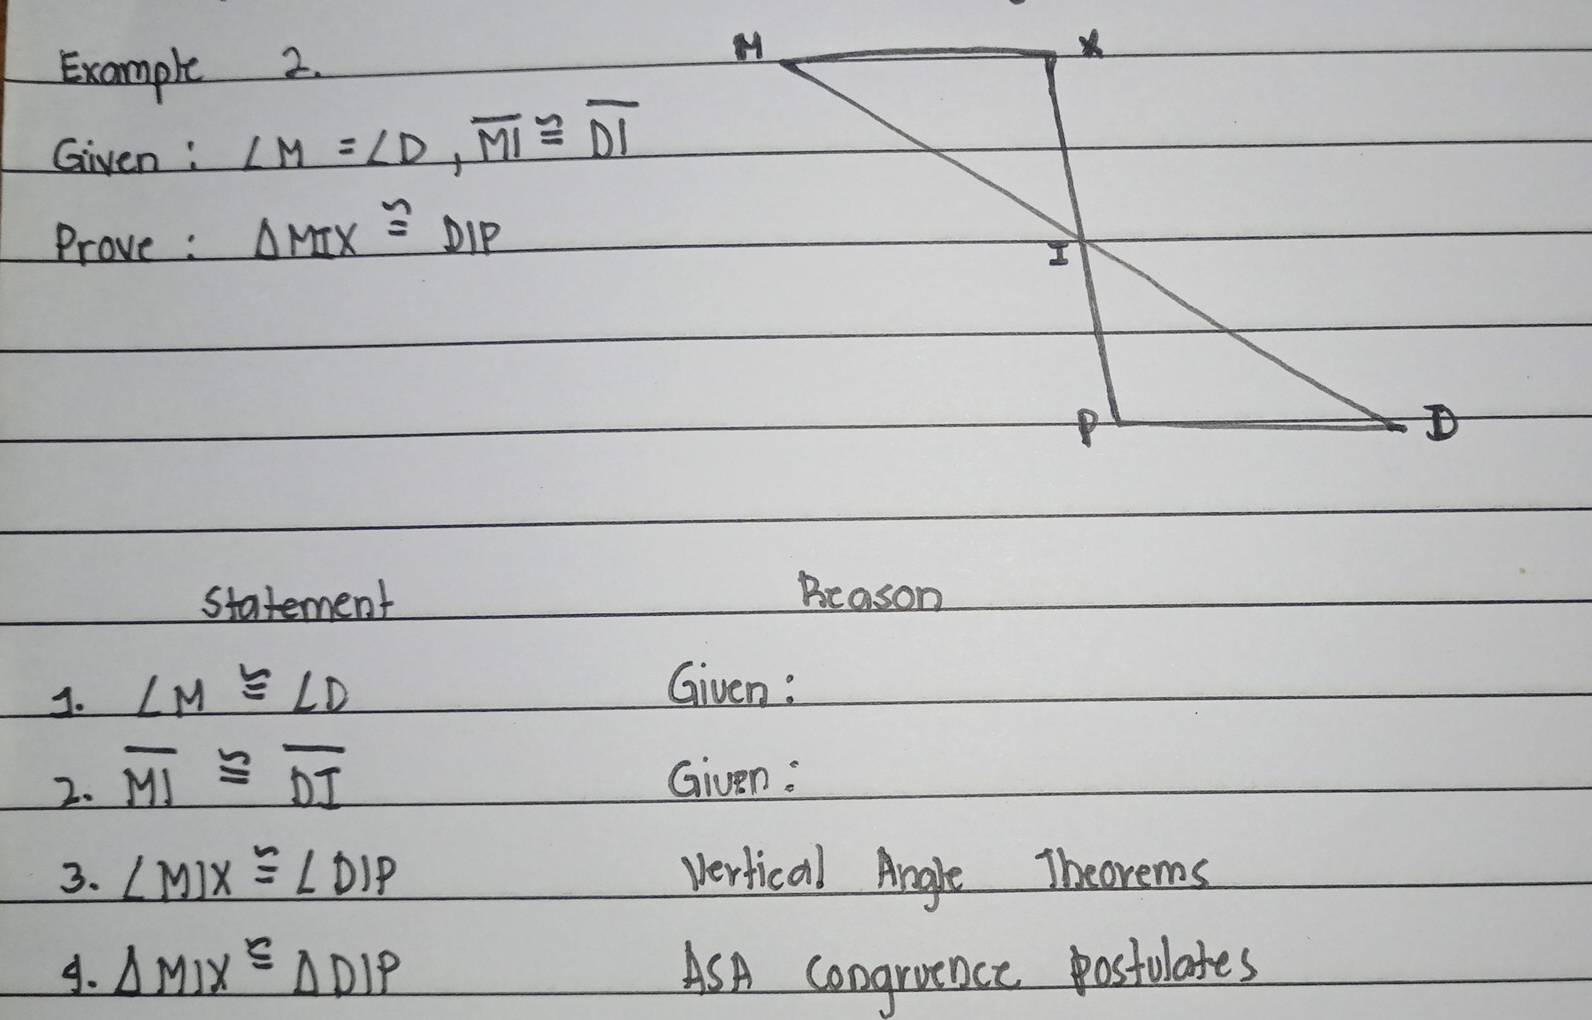 Example 2.
Given : ∠M = ∠D, M̅I̅ ≅ D̅I̅
Prove : ΔMIX ≅ DIP
M
X
I
P
D
Statement Reason
1. ∠M ≅ ∠D Given :
2. M̅I̅ ≅ D̅I̅ Given :
3. ∠MIX ≅ ∠DIP Vertical Angle Theorems
4. ΔMIX ≅ ΔDIP ASA Congruence postulates